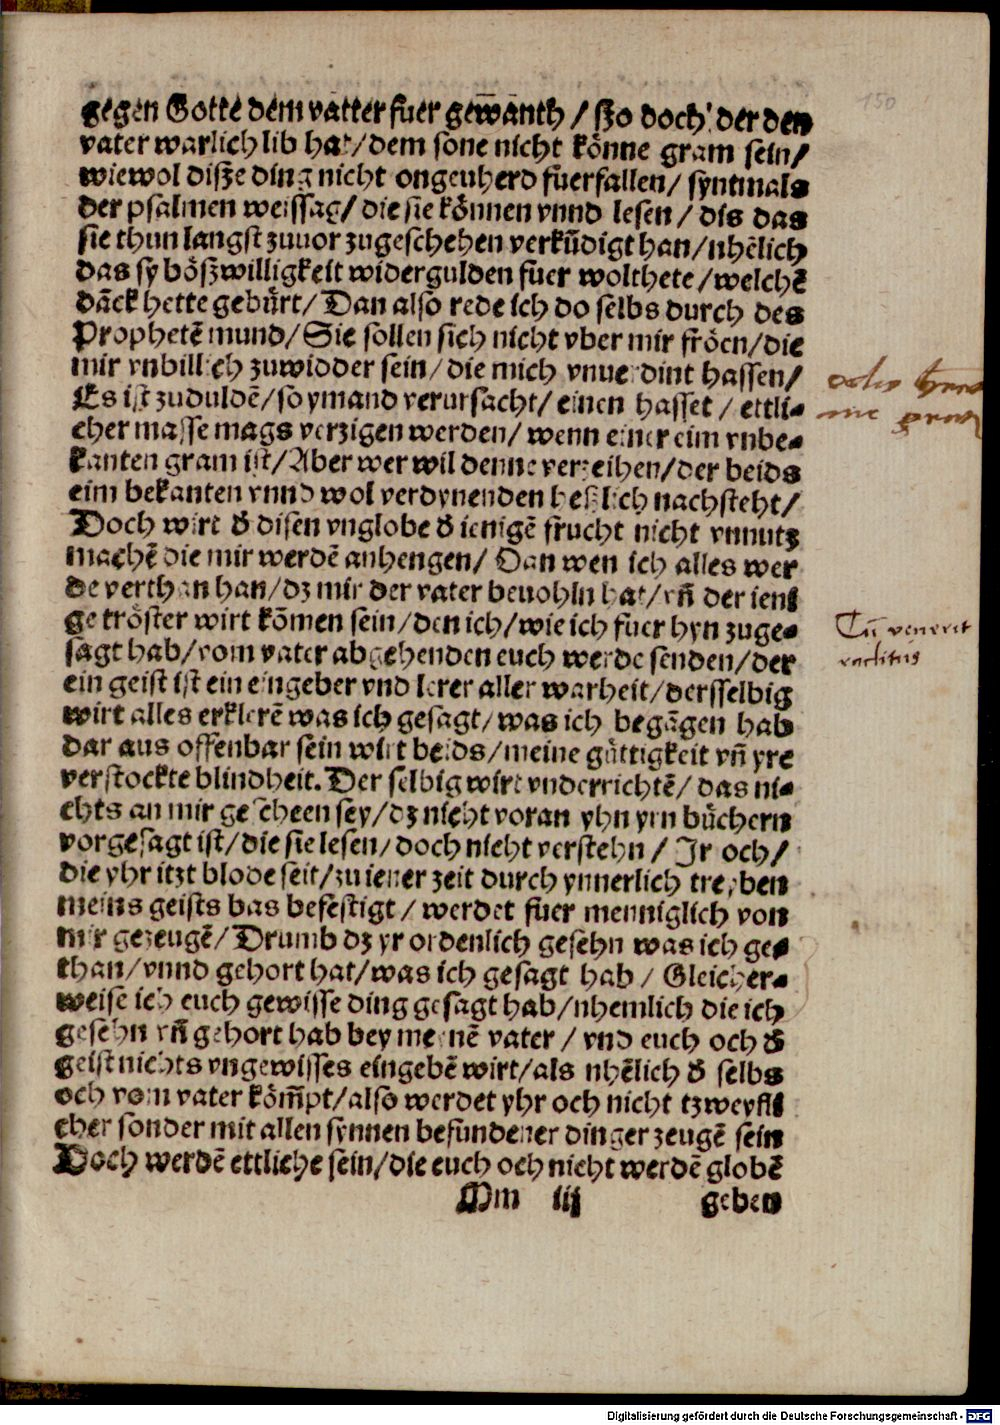 gegen Gotte dem vatter fuer gewānth / ſzo doch der den
vater warlich lib hat/dem sone nicht könne gram sein/
wiewol disze ding nicht ongeuherd fuerfallen/ syntmals
der psalmen weissag/ die sie können vnnd lesen / dis das
sie thun langst zuuor zugeschehen verkūdigt han/nhēlich
das sy böszwilligkeit widergulden fuer wolthete/welchē
dāck hette gebürt/ Dan also rede ich do selbs durch des
Prophetē mund/ Sie sollen sich nicht vber mir fröen/die
mir vnbillich zuwidder sein/ die mich vnuerdint hassen/
Es ist zuduldē/so ymand verursacht/einen hasset / ettli-
cher masse mags verzigen werden/ wenn einer eim vnbe-
kanten gram ist/Aber wer wil denne verzeihen/der beids
eim bekanten vnnd wol verdynenden heßlich nachsteht/
Doch wirt d̄ disen vnglobe d̄ ienigē frucht nicht vnnutz
machē die mir werdē anhengen/ Dan wen ich alles wer
de verthan han/dz mir der vater beuohln hat/vn̄ der ieni
ge tröster wirt kōmen sein/den ich/wie ich fuer hyn zuge-
sagt hab/vom vater abgehenden euch werde senden/der
ein geist ist ein eingeber vnd lerer aller warheit/dersselbig
wirt alles erklerē was ich gesagt/was ich begāgen hab
dar aus offenbar sein wirt beids/meine güttigkeit vn̄ yre
verstockte blindheit. Der selbig wirt vnderrichtē/ das ni-
chts an mir gescheen sey/dz nicht voran yhn yrn büchern
vorgesagt ist/die sie lesen/doch nicht verstehn / Ir och/
die yhr itzt blode seit/zu iener zeit durch ynnerlich treyben
meins geists bas befestigt / werdet fuer menniglich von
mir gezeugē/ Drumb dz yr ordenlich gesehn was ich ge-
than/vnnd gehort hat/was ich gesagt hab / Gleicher-
weise ich euch gewisse ding gesagt hab/nhemlich die ich
gesehn vn̄ gehort hab bey meynē vater / vnd euch och d̄
geist nichts vngewisses eingebē wirt/als nhēlich d̄ selbs
och vom vater köm̄pt/also werdet yhr och nicht tzweyfli
cher sonder mit allen synnen befundener dinger zeugē sein
Doch werdē ettliche sein/die euch och nicht werdē globē
Mm iij geben
150
Cū venerit
Digitalisierung gefördert durch die Deutsche Forschungsgemeinschaft - DFG